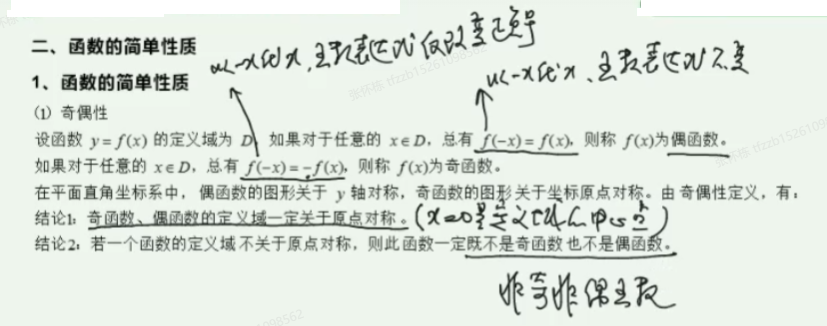 二、函数的简单性质
以-x代x,函数表达式仅改变正负号
1、函数的简单性质
以-x代x、函数表达式不变
(1) 奇偶性
设函数 y=f(x) 的定义域为 D, 如果对于任意的 x∈D, 总有 f(-x)=f(x), 则称 f(x)为偶函数。
如果对于任意的 x∈D, 总有 f(-x)=-f(x), 则称 f(x)为奇函数。
在平面直角坐标系中, 偶函数的图形关于 y 轴对称, 奇函数的图形关于坐标原点对称。由奇偶性定义, 有:
结论1: 奇函数、偶函数的定义域一定关于原点对称。(x=0是定义域的中心点)
结论2: 若一个函数的定义域不关于原点对称, 则此函数一定既不是奇函数也不是偶函数。
非奇非偶函数